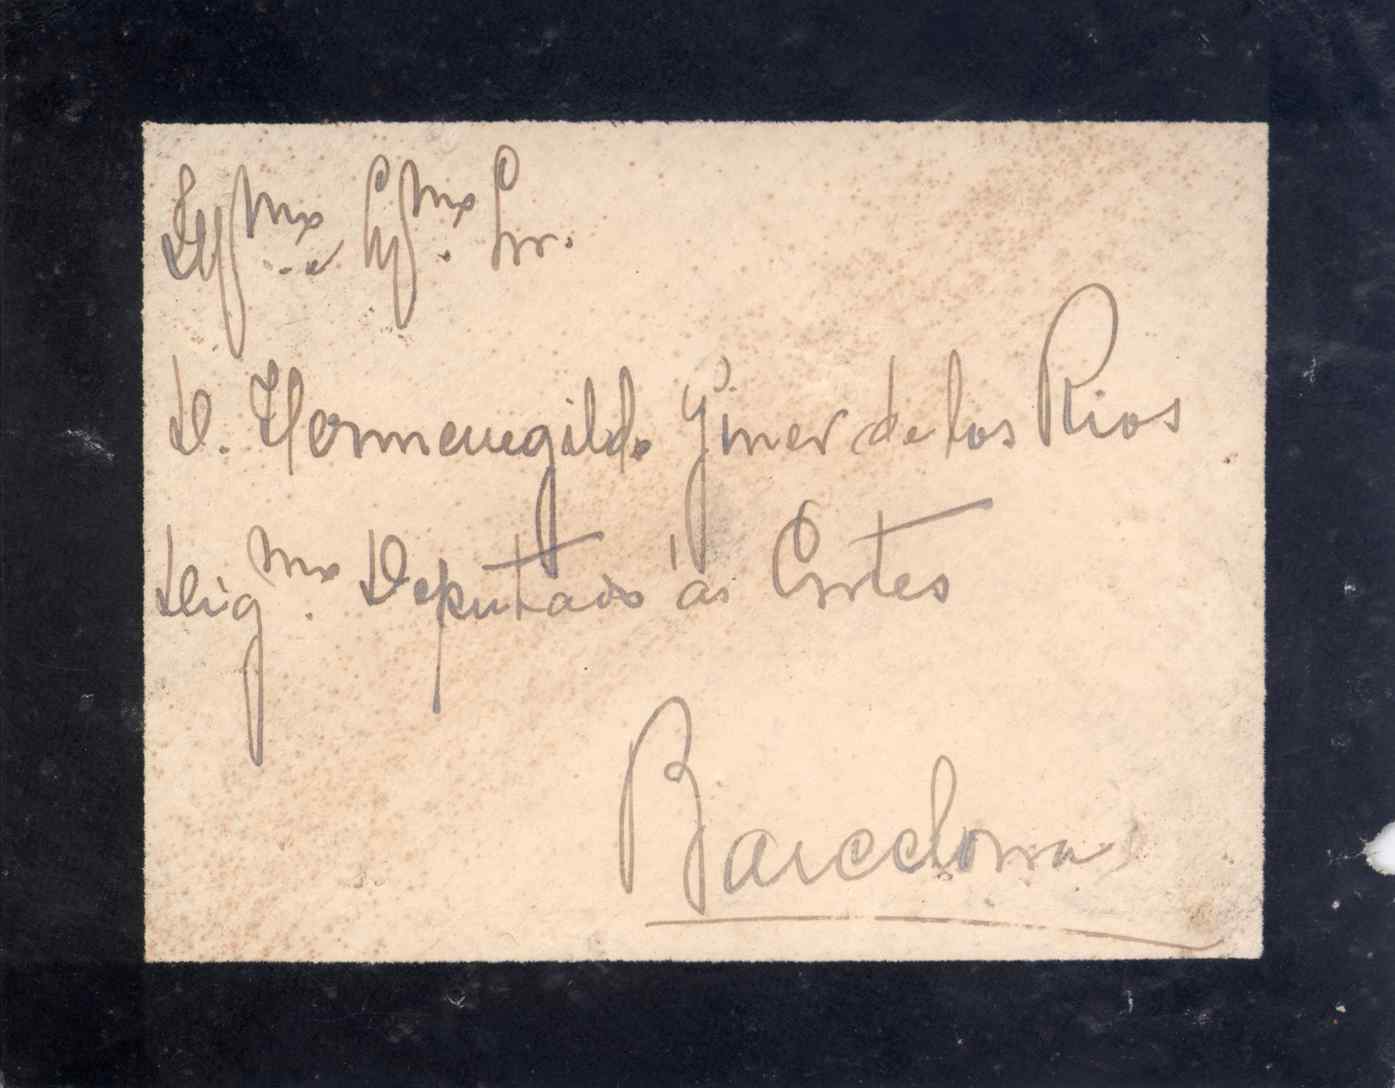 Ill.mo e Ex.mo Snr.
D. Hermenegildo Giner de los Rios
Dig.mo Deputado ás Cortes
Barcelona